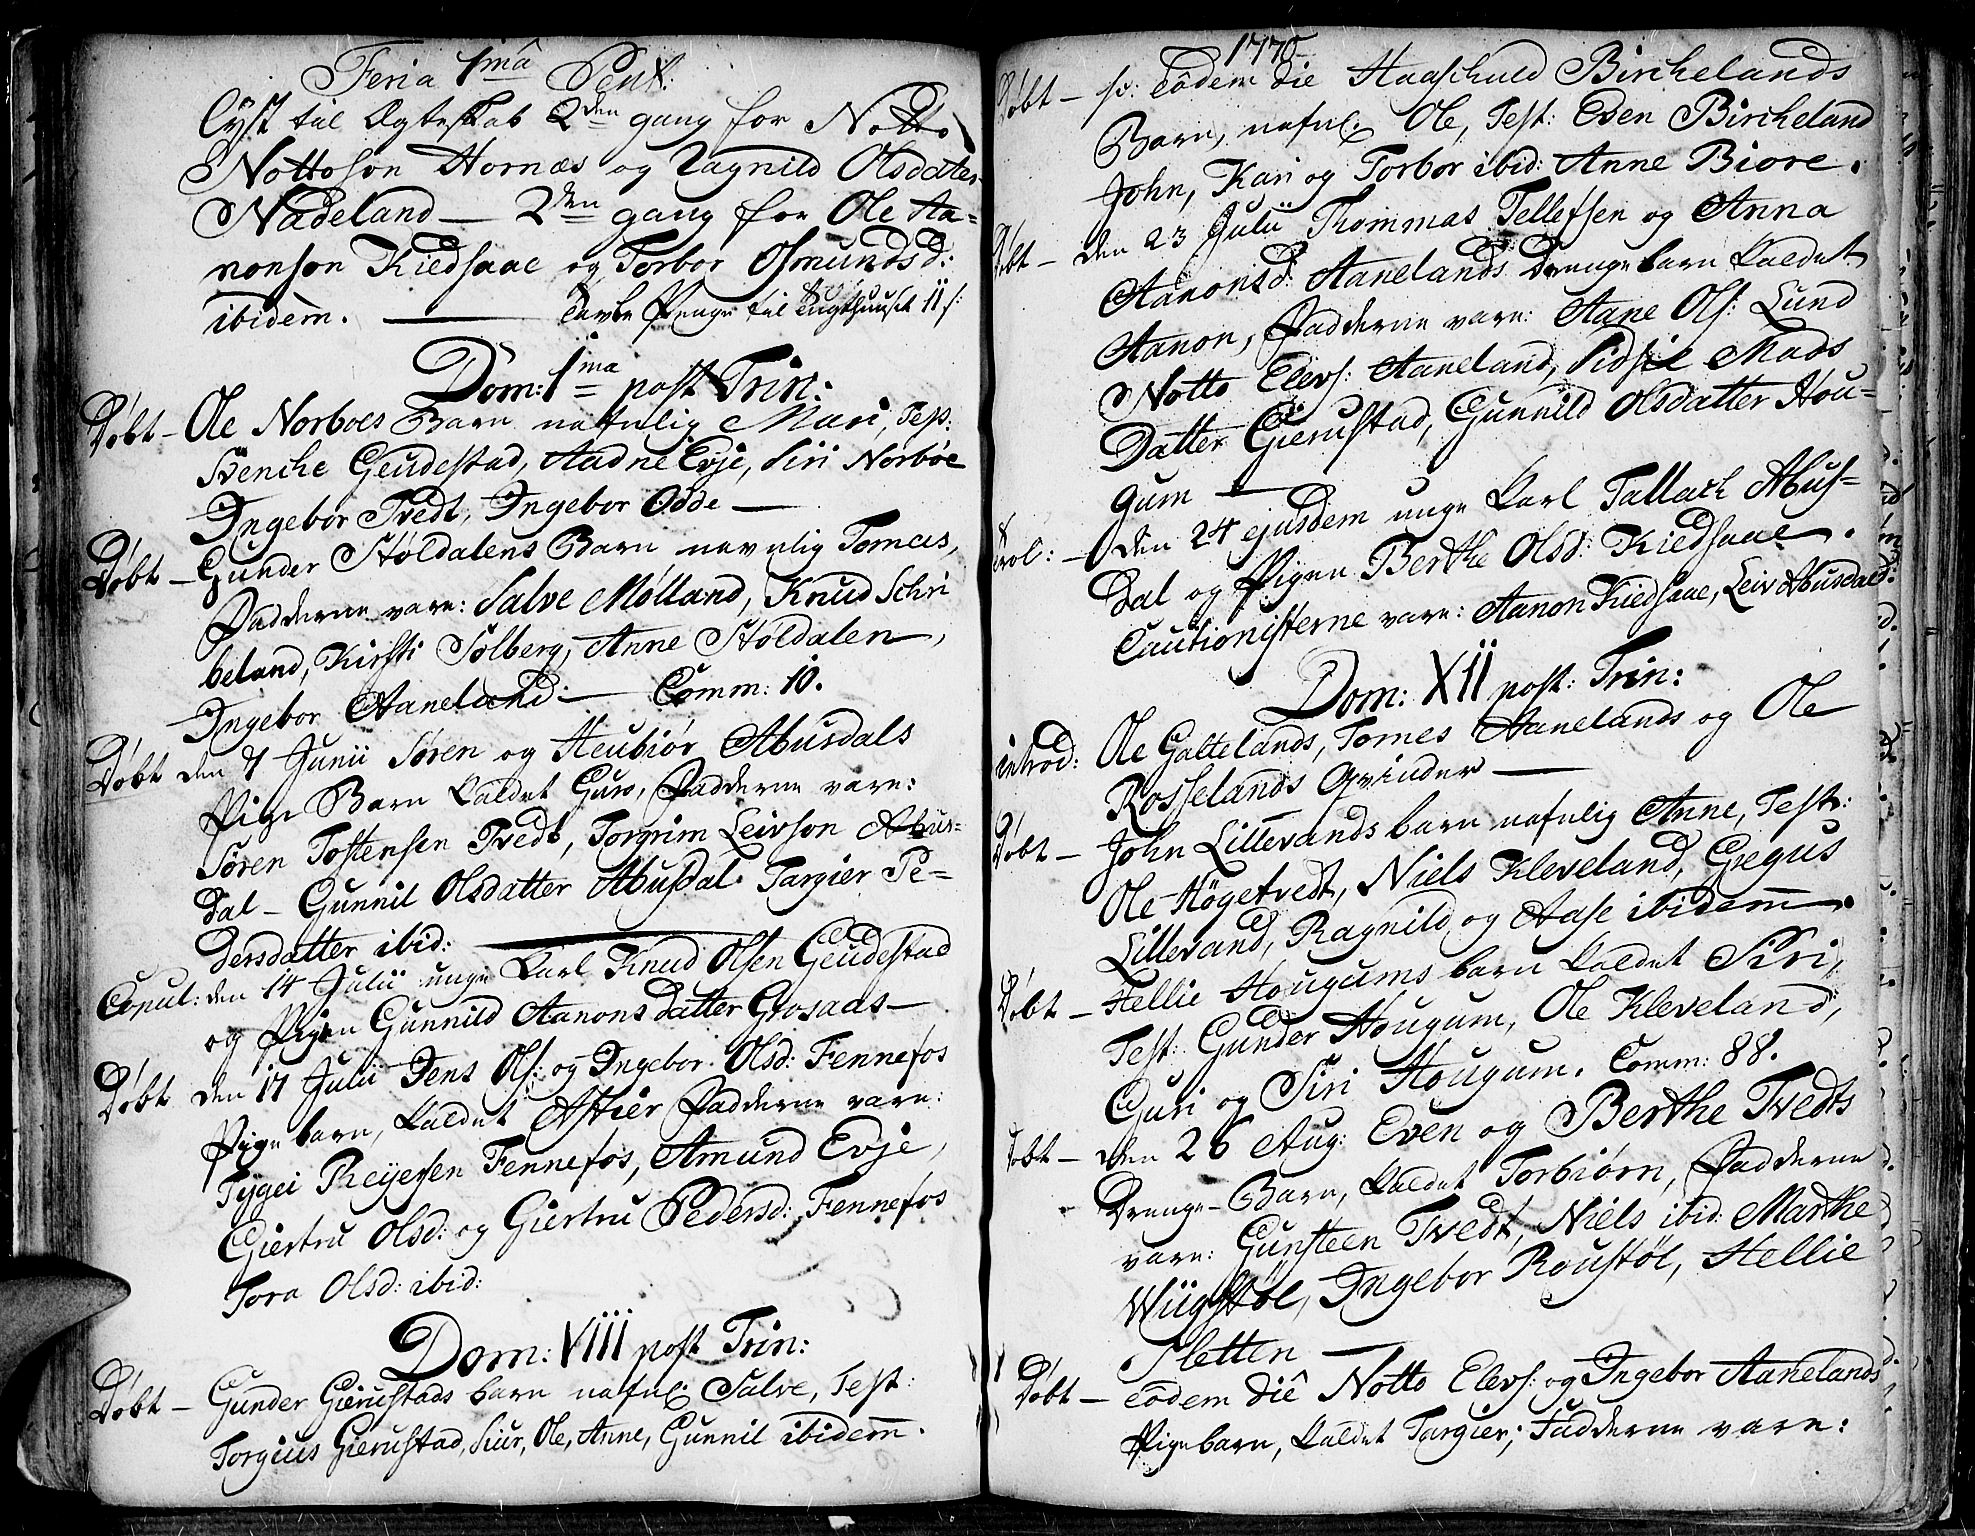 Feria 1mâ Pent:
lyst til Ægteskab 2den gang for Notto
Nottoson Hornæs og Ragnild Olsdatter
Nadeland — 2den gang for Ole Aa-
nonson Kiedsaae og Torbor Osmundsd:
ibidem. — Tavle Penge til Tugthuuset 11 s:
Dom: 1ma post Trin:
Døbt — Ole Norboes Barn nafnlig Mari, Test:
Svenche Geudestad, Aadne Evje, Siri Norbøe
Ingebor Tvedt, Ingebor Odde —
Døbt — Gunder Støldalens Barn navnlig Tomas,
Fadderne vare: Salve Mølland, Knud Schri
beland, Kirsti Solberg, Anne Støldalen,
Ingebor Aaneland: — Comm: 10.
Døbt den 7 Junii Søren og Heubiør Abusdals
Pige Barn kaldet Guro, Fadderne vare:
Søren Tostensen Tvedt, Torgrim Leivson Abus-
dal — Gunnil Olsdatter Abusdal. Targier Pe-
dersdatter ibid: —
Copul: den 14 Julii unge Karl Knud Olsen Geudestad
og Pigen Gunnild Aanons datter Grosaas —
Døbt den 17 Julii Jens Ols: og Ingebor Olsd: Fennefos
Pige barn, kaldet Astier Fadderne vare:
Tygei Reiersen Fennefos, Amund Evje,
Giertru Olsd: og Giertru Pedersd: Fennefos
Tora Olsd: ibid:
Dom: VIII post Trin:
Døbt — Gunder Gierustads barn nafnl: Salve, Test:
Torgius Gierustad, Siur, Ole, Anne, Gunnil ibidem.
1770
Døbt — eôdem die Haaschuld Birchelands
Barn, nafnl. Ole, Test: Eden Bircheland
John, Kari og Torbor ibid: Anne Biore.
Døbt — den 23 Julii Thommas Tellefsen og Anna
Aanonsd: Aanelands Drenge barn kaldet
Aanon, Fadderne vare: Aane Ols: Lund
Notto Elevs: Aaneland, Sidsie Mads
Datter Gierustad, Gunnild Olsdatter Hou-
gum —
Trol: — den 24 ejusdem unge Karl Tallach Abus-
dal og Pigen Berthe Olsd: Kiedsaae.
Cautionisterne vare: Aanon Kiedsaae, Leiv Abusdal.
Dom: XII post: Trin:
introd: Ole Galtelands, Tomes Aanelands og Ole
Rosselands Qvinder —
Døbt — John Lillevands barn nafnlig Anne, Test:
Ole Høgetvedt, Niels Kleveland, Gregus
Lillevand, Ragnild og Aase ibidem.
Døbt — Hellie Hougums barn kaldet Siri,
Test: Gunder Hougum, Ole Kleveland,
Guri og Siri Hougum. Comm: 88.
Døbt — den 26 Aug: Even og Berthe Tvedts
Drenge-Barn, kaldet Torbiørn, Fadderne
vare: Gunsteen Tvedt, Niels ibid: Marthe
Wiigstøl, Ingebor Roustøl, Hellie
Sletten —
Døbt — eôdem diê Notto Elevs: og Ingebor Aanelands
Pige barn, kaldet Targier; Fadderne vare: